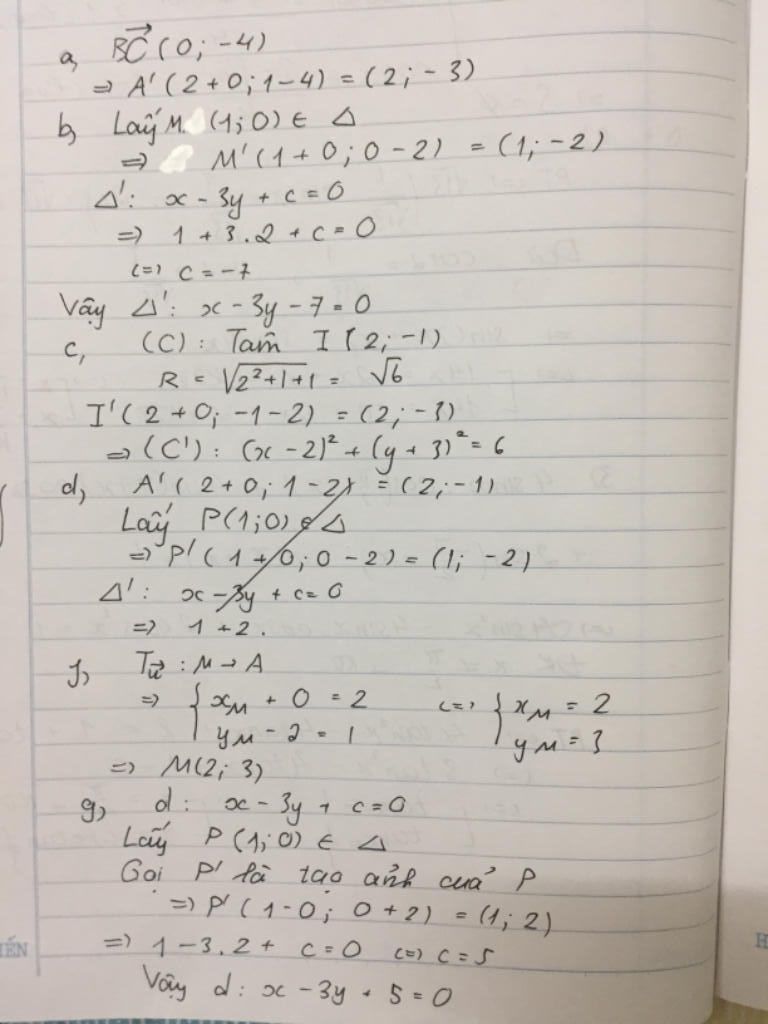 a, BC→ (0; -4)
⇒ A' (2+0; 1-4) = (2; -3)
b, Lấy M (1; 0) ∈ Δ
⇒ M' (1+0; 0-2) = (1; -2)
Δ': x - 3y + c = 0
⇒ 1 + 3.2 + c = 0
⇔ c = -7
Vậy Δ': x - 3y - 7 = 0
c, (C): Tâm I (2; -1)
R = √(2²+1+1) = √6
I' (2+0; -1-2) = (2; -3)
⇒ (C'): (x-2)² + (y+3)² = 6
d, A' (2+0; 1-2) = (2; -1)
Lấy P(1; 0) ∈ Δ
⇒ P' (1+0; 0-2) = (1; -2)
Δ': x - 3y + c = 0
⇒ 1 + 2.
f, T_u→ : M → A
⇒ { x_M + 0 = 2 ⇔ { x_M = 2
y_M - 2 = 1 y_M = 3
⇒ M(2; 3)
g, d: x - 3y + c = 0
Lấy P (1; 0) ∈ Δ
Gọi P' là tạo ảnh cuả P
⇒ P' (1-0; 0+2) = (1; 2)
⇒ 1 - 3.2 + c = 0 ⇔ c = 5
Vậy d: x - 3y + 5 = 0
ẾN
H